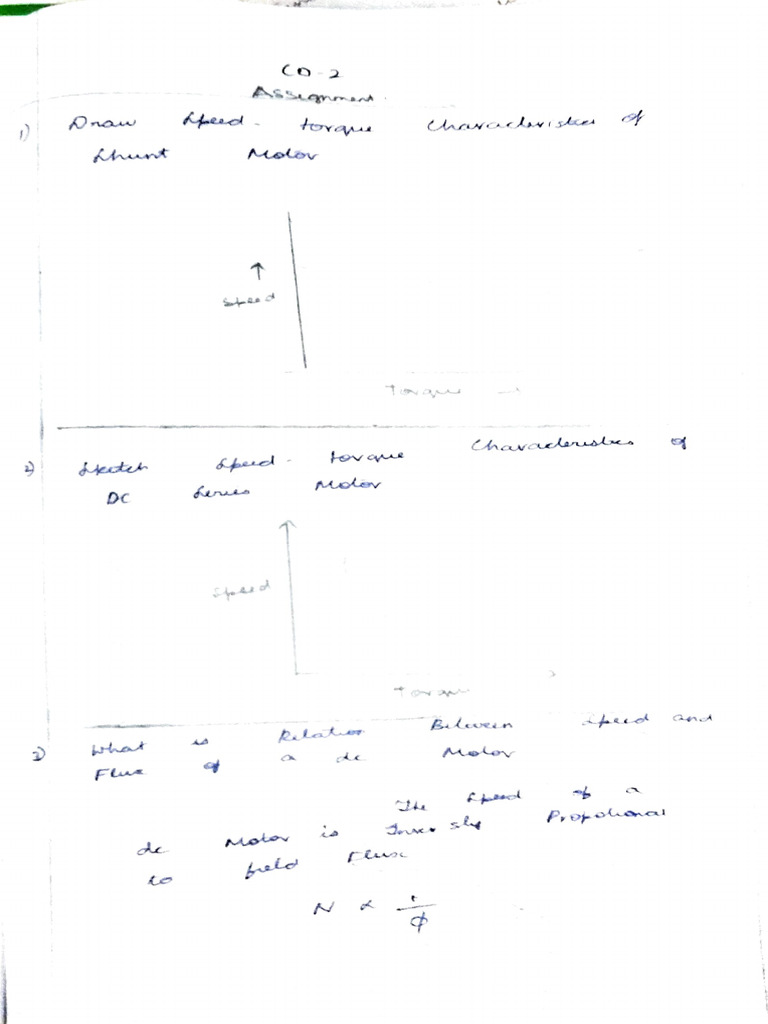 CO-2
Assignment.
1) Draw Speed- torque Characteristics of
Shunt Motor
↑
Speed
Torque →
2) Sketch Speed- torque Characteristics of
DC Series Motor
Speed
Torque
3) What is Relation Between Speed and
Flux of a dc Motor
The Speed of a
dc Motor is Inversly Propotional
to field Flux
N ∝ 1/ϕ